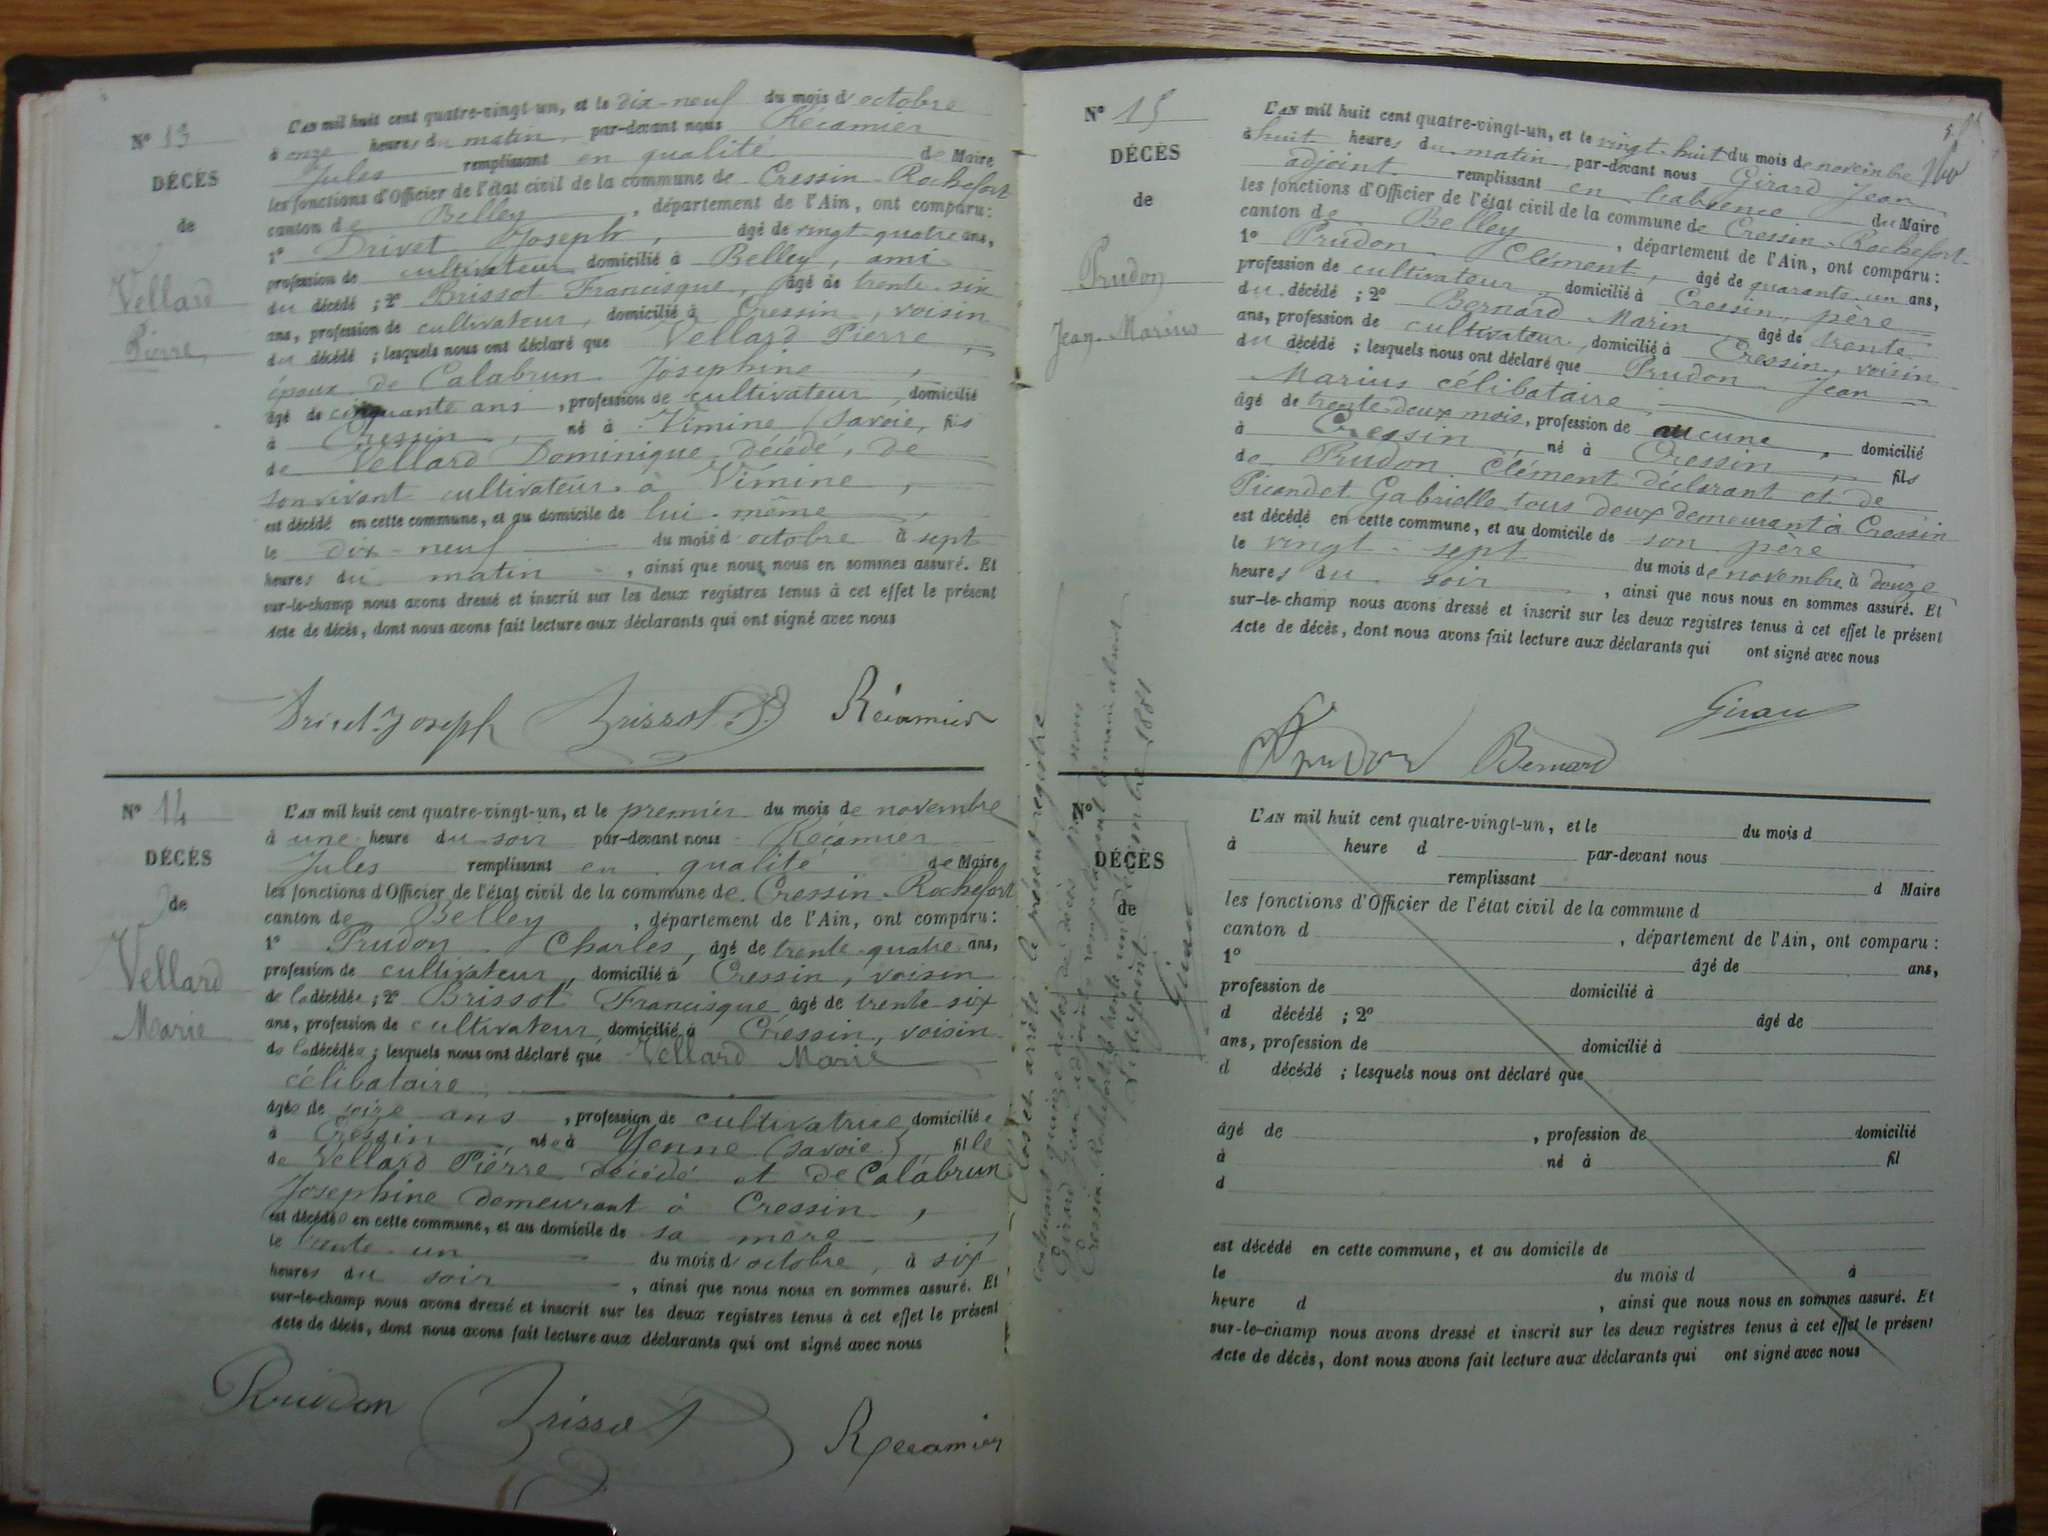 N° 13
DÉCÈS
de
Vellard
Pierre
L'AN mil huit cent quatre-vingt-un, et le dix-neuf du mois d'octobre
à onze heures du matin par-devant nous Récamier
Jules remplissant en qualité de Maire
les fonctions d'Officier de l'état civil de la commune de Cressin-Rochefort
canton de Belley, département de l'Ain, ont comparu :
1° Drivet Joseph, âgé de vingt-quatre ans,
profession de cultivateur domicilié à Belley, ami
du décédé ; 2° Brissot Francisque, âgé de trente-six
ans, profession de cultivateur, domicilié à Cressin, voisin
du décédé ; lesquels nous ont déclaré que Vellard Pierre,
époux de Calabrun Josephine,
âgé de cinquante ans, profession de cultivateur, domicilié
à Cressin, né à Vimine (Savoie, fils
de Vellard Dominique décédé, de
son vivant cultivateur à Vimine,
est décédé en cette commune, et au domicile de lui-même,
le dix-neuf du mois d'octobre à sept
heures du matin, ainsi que nous nous en sommes assuré. Et
sur-le-champ nous avons dressé et inscrit sur les deux registres tenus à cet effet le présent
Acte de décès, dont nous avons fait lecture aux déclarants qui ont signé avec nous
Drivet Joseph Brissot F. Récamier
N° 14
DÉCÈS
de
Vellard
Marie
L'AN mil huit cent quatre-vingt-un, et le premier du mois de novembre
à une heure du soir par-devant nous Récamier
Jules remplissant en qualité de Maire
les fonctions d'Officier de l'état civil de la commune de Cressin-Rochefort
canton de Belley, département de l'Ain, ont comparu :
1° Prudon Charles, âgé de trente-quatre ans,
profession de cultivateur, domicilié à Cressin, voisin
de la décédée ; 2° Brissot Francisque âgé de trente-six
ans, profession de cultivateur, domicilié à Cressin, voisin
de la décédée ; lesquels nous ont déclaré que Vellard Marie
célibataire
âgée de seize ans, profession de cultivatrice, domiciliée
à Cressin, née à Yenne (Savoie), fille
de Vellard Pierre décédé et de Calabrun
Josephine demeurant à Cressin,
est décédée en cette commune, et au domicile de sa mère,
le trente-un du mois d'octobre, à six
heures du soir, ainsi que nous nous en sommes assuré. Et
sur-le-champ nous avons dressé et inscrit sur les deux registres tenus à cet effet le présent
Acte de décès, dont nous avons fait lecture aux déclarants qui ont signé avec nous
Prudon Brissot Récamier
N° 15
DÉCÈS
de
Prudon
Jean-Marius
L'AN mil huit cent quatre-vingt-un, et le vingt-huit du mois de novembre
à huit heures du matin par-devant nous Girard Jean
adjoint remplissant en l'absence du Maire
les fonctions d'Officier de l'état civil de la commune de Cressin-Rochefort
canton de Belley, département de l'Ain, ont comparu :
1° Prudon Clément, âgé de quarante-un ans,
profession de cultivateur, domicilié à Cressin, père
du décédé ; 2° Bernard Marin, âgé de trente
ans, profession de cultivateur, domicilié à Cressin, voisin
du décédé ; lesquels nous ont déclaré que Prudon Jean
Marius célibataire
âgé de trente-deux mois, profession de aucune, domicilié
à Cressin, né à Cressin, fils
de Prudon Clément déclarant et de
Picandet Gabrielle tous deux demeurant à Cressin
est décédé en cette commune, et au domicile de son père
le vingt-sept du mois de novembre à douze
heures du soir, ainsi que nous nous en sommes assuré. Et
sur-le-champ nous avons dressé et inscrit sur les deux registres tenus à cet effet le présent
Acte de décès, dont nous avons fait lecture aux déclarants qui ont signé avec nous
Girard
Prudon Bernard
Clos et arrêté le présent registre
contenant quinze actes de décès par nous
Girard Jean adjoint, remplaçant le maire absent
Cressin-Rochefort le trente un décembre 1881
L'adjoint
Girard
N°
DÉCÈS
de
L'AN mil huit cent quatre-vingt-un, et le du mois d
à heure d par-devant nous
remplissant d Maire
les fonctions d'Officier de l'état civil de la commune d
canton d , département de l'Ain, ont comparu :
1° âgé de ans,
profession de domicilié à
d décédé ; 2° âgé de
ans, profession de domicilié à
d décédé ; lesquels nous ont déclaré que
âgé de , profession de domicilié
à né à fil
d
est décédé en cette commune, et au domicile de
le du mois d à
heure d , ainsi que nous nous en sommes assuré. Et
sur-le-champ nous avons dressé et inscrit sur les deux registres tenus à cet effet le présent
Acte de décès, dont nous avons fait lecture aux déclarants qui ont signé avec nous